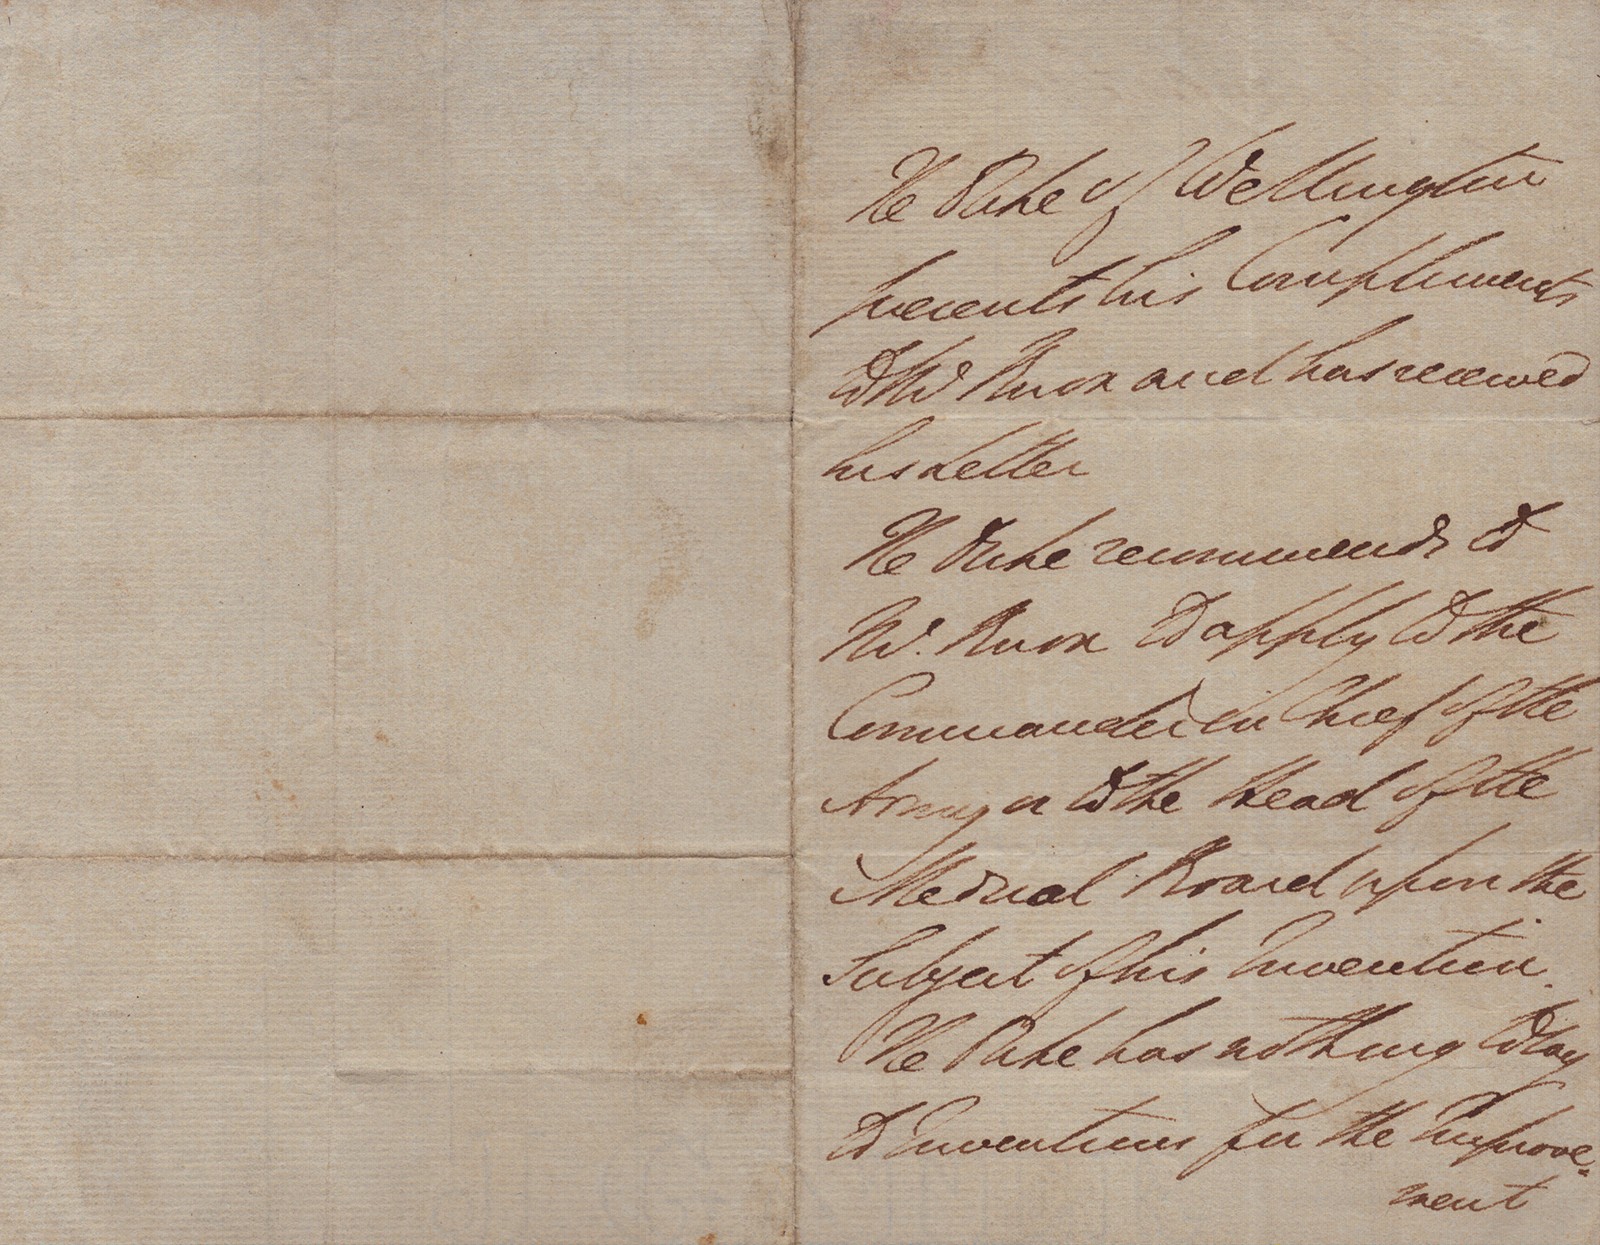 The Duke of Wellington
presents his Compliments
to Mr and has received
his Letter
The Duke recommends to
Mr. to apply to the
Commander in Chief of the
Army or to the Head of the
Medical Board upon the
Subject of his Invention.
The Duke has nothing to say
to Inventions for the Improve=
ment